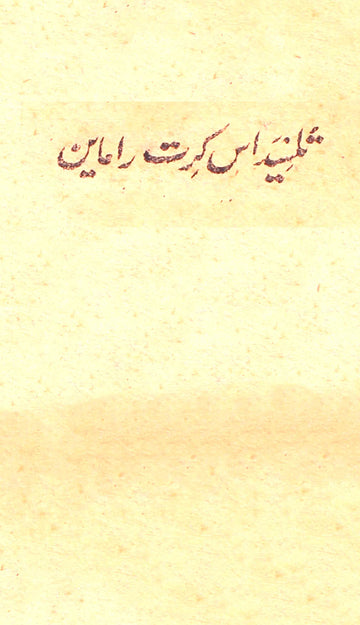 تلسیداس کرت راماین